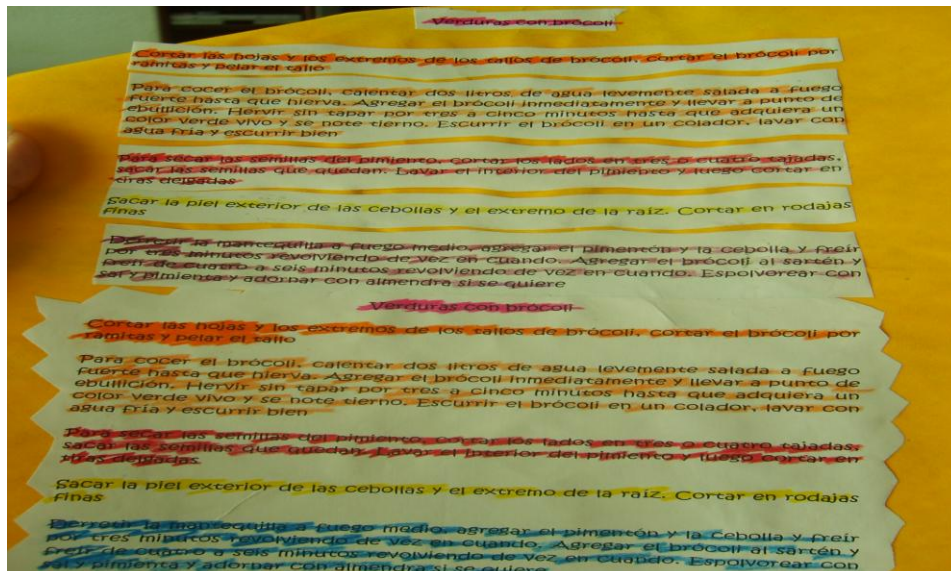 Verduras con brócoli
Cortar las hojas y los extremos de los tallos de brócoli, cortar el brócoli por
ramitas y pelar el tallo
Para cocer el brócoli, calentar dos litros de agua levemente salada a fuego
fuerte hasta que hierva. Agregar el brócoli inmediatamente y llevar a punto de
ebullición. Hervir sin tapar por tres a cinco minutos hasta que adquiera un
color verde vivo y se note tierno. Escurrir el brócoli en un colador, lavar con
agua fría y escurrir bien
Para secar las semillas del pimiento, cortar los lados en tres o cuatro tajadas,
sacar las semillas que quedan. Lavar el interior del pimiento y luego cortar en
tiras delgadas
Sacar la piel exterior de las cebollas y el extremo de la raíz. Cortar en rodajas
finas
Derretir la mantequilla a fuego medio, agregar el pimentón y la cebolla y freír
por tres minutos revolviendo de vez en cuando. Agregar el brócoli al sartén y
freír de cuatro a seis minutos revolviendo de vez en cuando. Espolvorear con
sal y pimienta y adornar con almendra si se quiere
Verduras con brócoli
Cortar las hojas y los extremos de los tallos de brócoli, cortar el brócoli por
ramitas y pelar el tallo
Para cocer el brócoli, calentar dos litros de agua levemente salada a fuego
fuerte hasta que hierva. Agregar el brócoli inmediatamente y llevar a punto de
ebullición. Hervir sin tapar por tres a cinco minutos hasta que adquiera un
color verde vivo y se note tierno. Escurrir el brócoli en un colador, lavar con
agua fría y escurrir bien
Para secar las semillas del pimiento, cortar los lados en tres o cuatro tajadas,
sacar las semillas que quedan. Lavar el interior del pimiento y luego cortar en
tiras delgadas
Sacar la piel exterior de las cebollas y el extremo de la raíz. Cortar en rodajas
finas
Derretir la mantequilla a fuego medio, agregar el pimentón y la cebolla y freír
por tres minutos revolviendo de vez en cuando. Agregar el brócoli al sartén y
freír de cuatro a seis minutos revolviendo de vez en cuando. Espolvorear con
sal y pimienta y adornar con almendra si se quiere